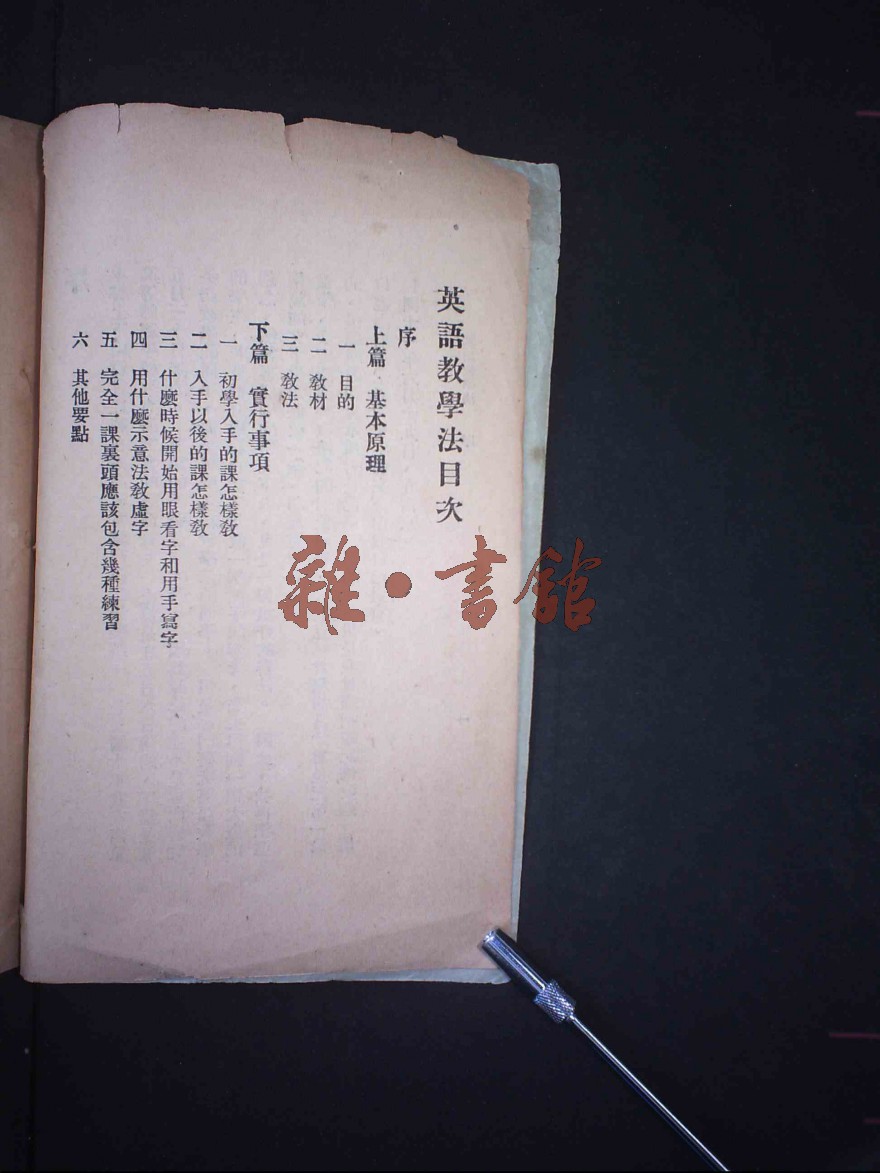 英語教學法目次
序
上篇 基本原理
一 目的
二 教材
三 教法
下篇 實行事項
一 初學入手的課怎樣教
二 入手以後的課怎樣教
三 什麼時候開始用眼看字和用手寫字
四 用什麼示意法教虛字
五 完全一課裏頭應該包含幾種練習
六 其他要點
雜·書館